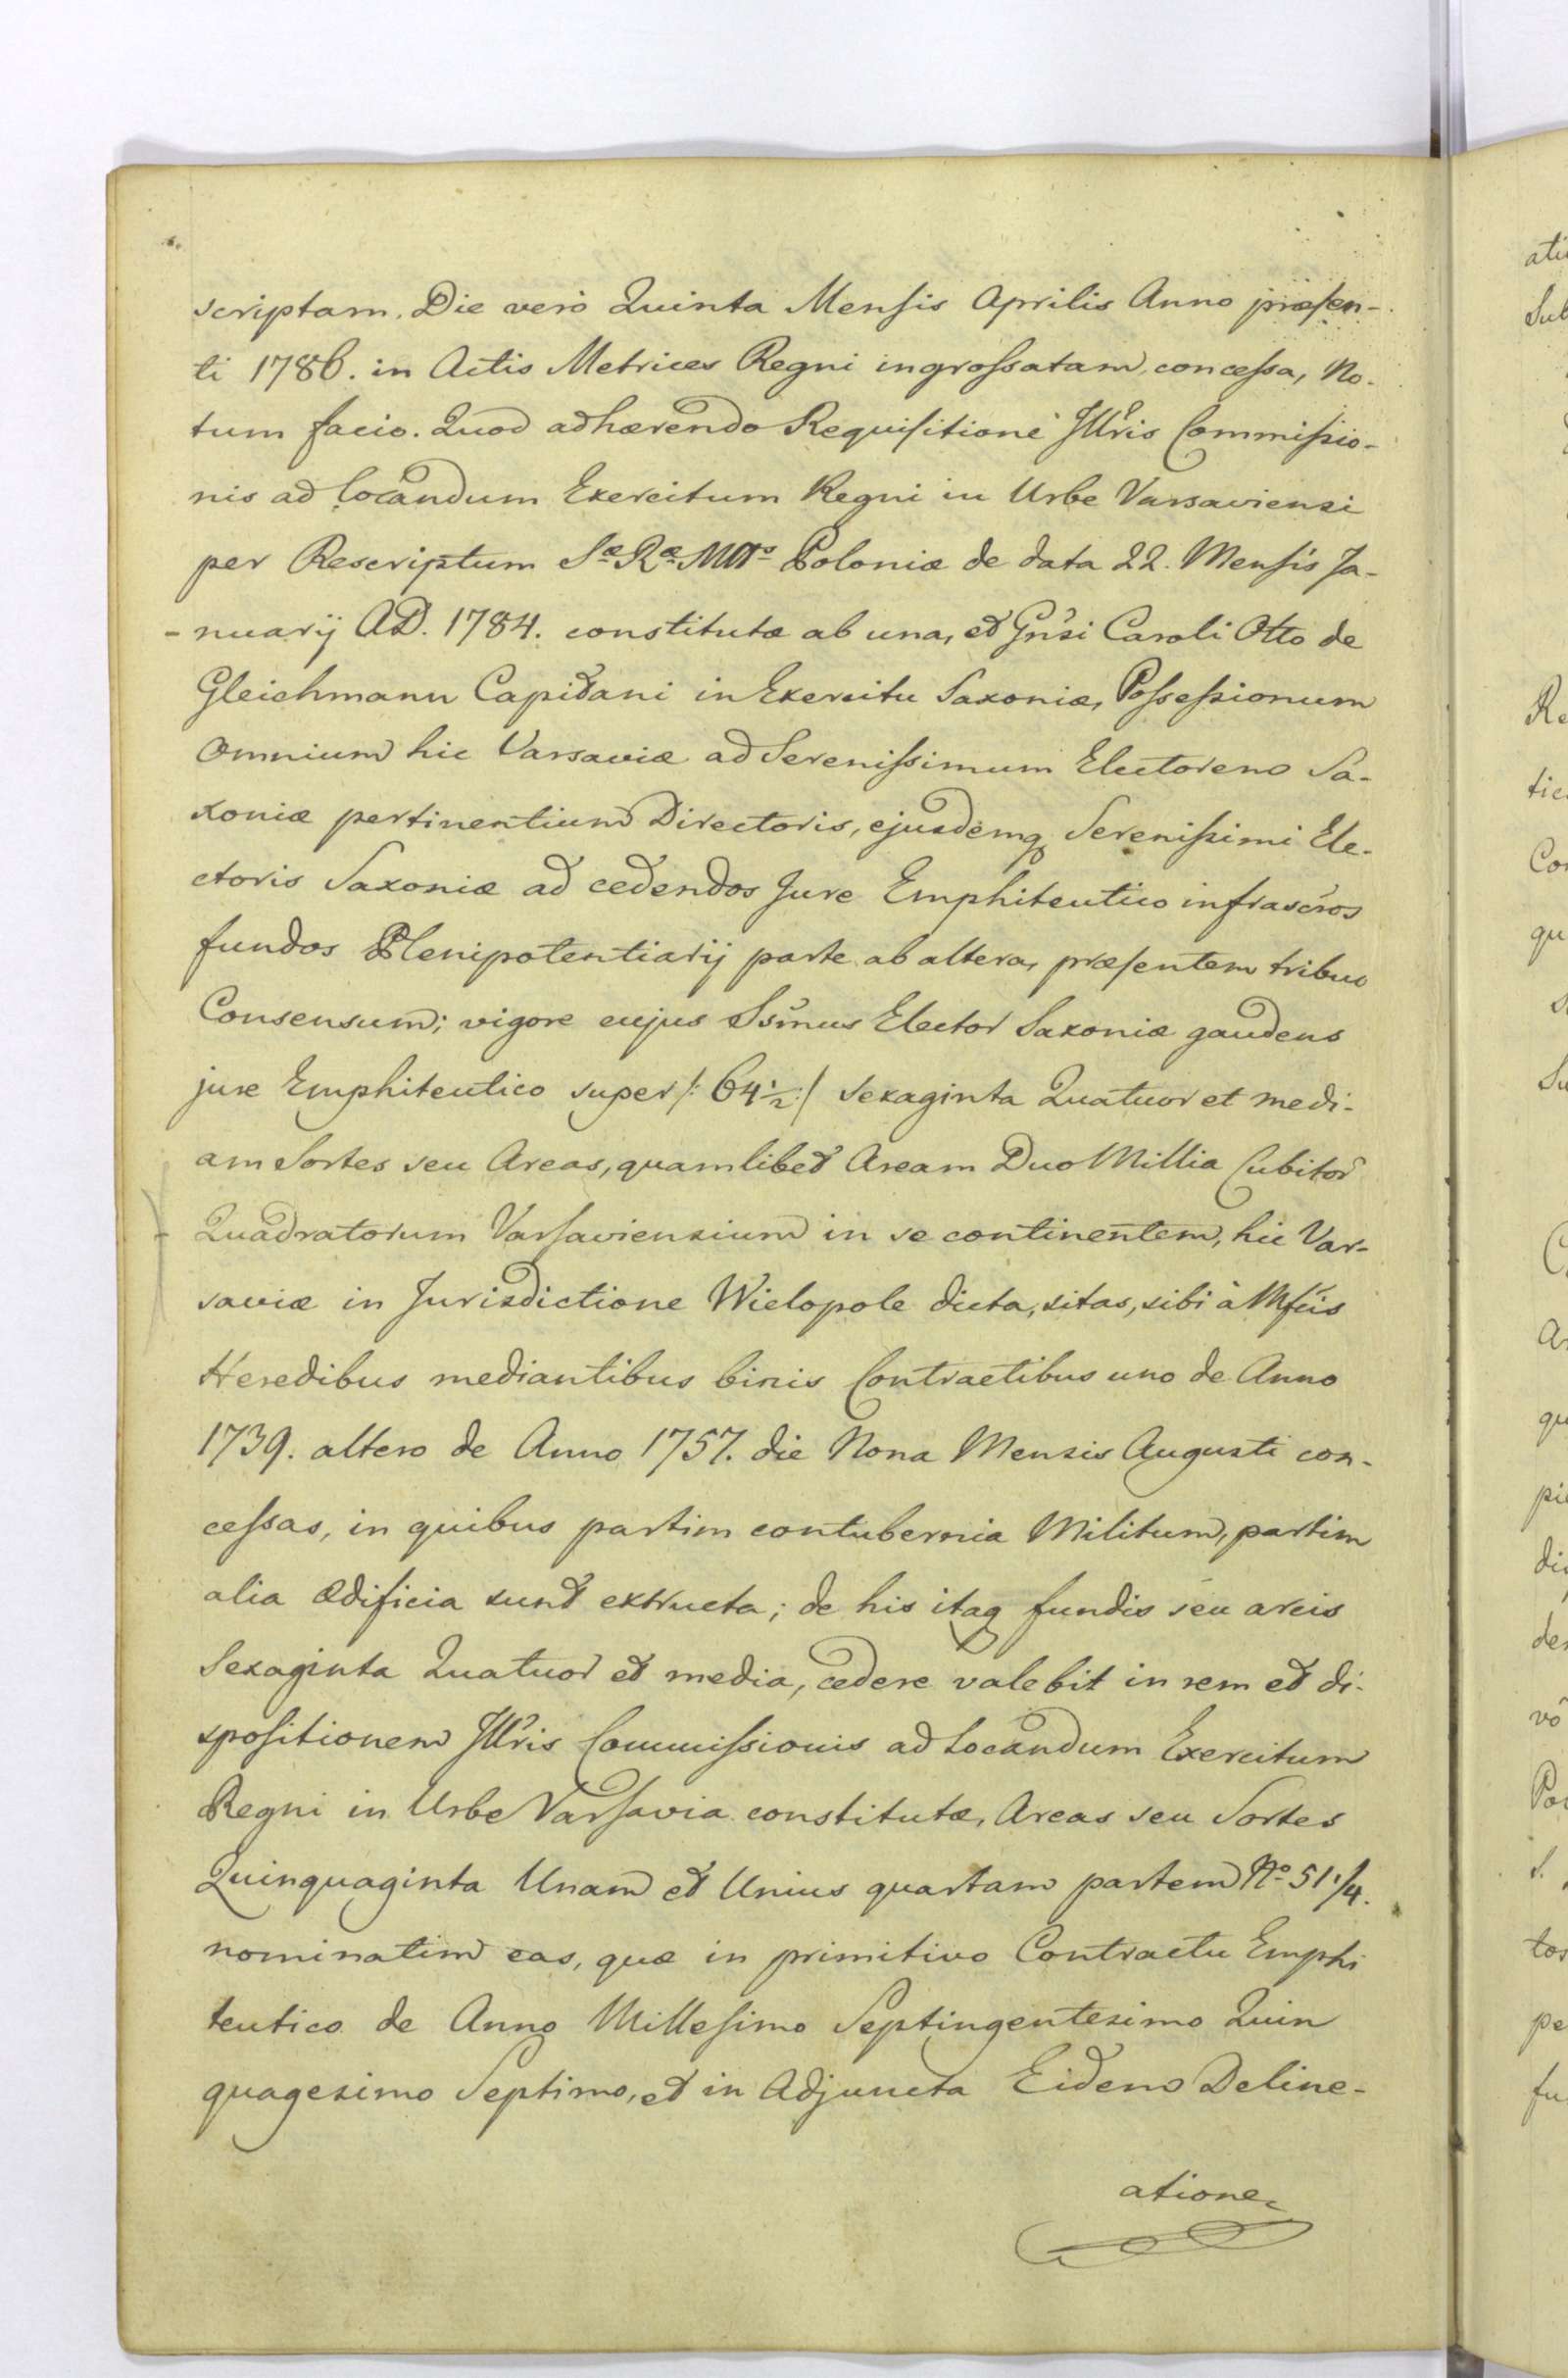 scriptam. Die verò Quinta Mensis Aprilis Anno præsen-
ti 1786. in Actis Metrices Regni ingrossatam concessa, No-
tum facio. Quod adhærendo Requisitioni Jllris Commissio-
nis ad locandum Exercitum Regni in Urbe Varsaviensi
per Rescriptum Sæ Ræ Mttis Poloniæ de data 22. Mensis Ja-
-nuarij AD. 1784. constitutæ ab una, et Gnsi Caroli Otto de
Gleichmann Capitani in Exercitu Saxoniæ, Possessionum
omnium hic Varsaviæ ad Serenissimum Electorem Sa-
xoniæ pertinentium Directoris, ejusdemq Serenissimi Ele-
ctoris Saxoniæ ad cedendos Jure Emphiteutico infrascros
fundos Plenipotentiarij parte ab altera, præsentem tribuo
Consensum; vigore cujus Ssmus Elector Saxoniæ gaudens
jure Emphiteutico super /: 64½ :/ sexaginta Quatuor et medi-
am Sortes seu Areas, quamlibet Aream Duo Millia Cubitor
Quadratorum Varsaviensium in se continentem, hic Var-
saviæ in Jurisdictione Wielopole dicta, sitas, sibi à Mfcis
Heredibus mediantibus binis Contractibus uno de Anno
1739. altero de Anno 1757. die Nona Mensis Augusti con-
cessas, in quibus partim contubernia Militum, partim
alia ædificia sunt extructa; de his itaq fundis seu areis
Sexaginta Quatuor et media, cedere valebit in rem et di-
spositionem Jllris Commissionis ad Locandum Exercitum
Regni in Urbe Varsavia constitutæ, Areas seu Sortes
Quinquaginta Unam et Unius quartam partem No 51 1/4.
nominatim eas, quæ in primitivo Contractu Emphi
teutico de Anno Millesimo Septingentesimo Quin
quagesimo Septimo, et in Adjuncta Eidem Deline-
atione